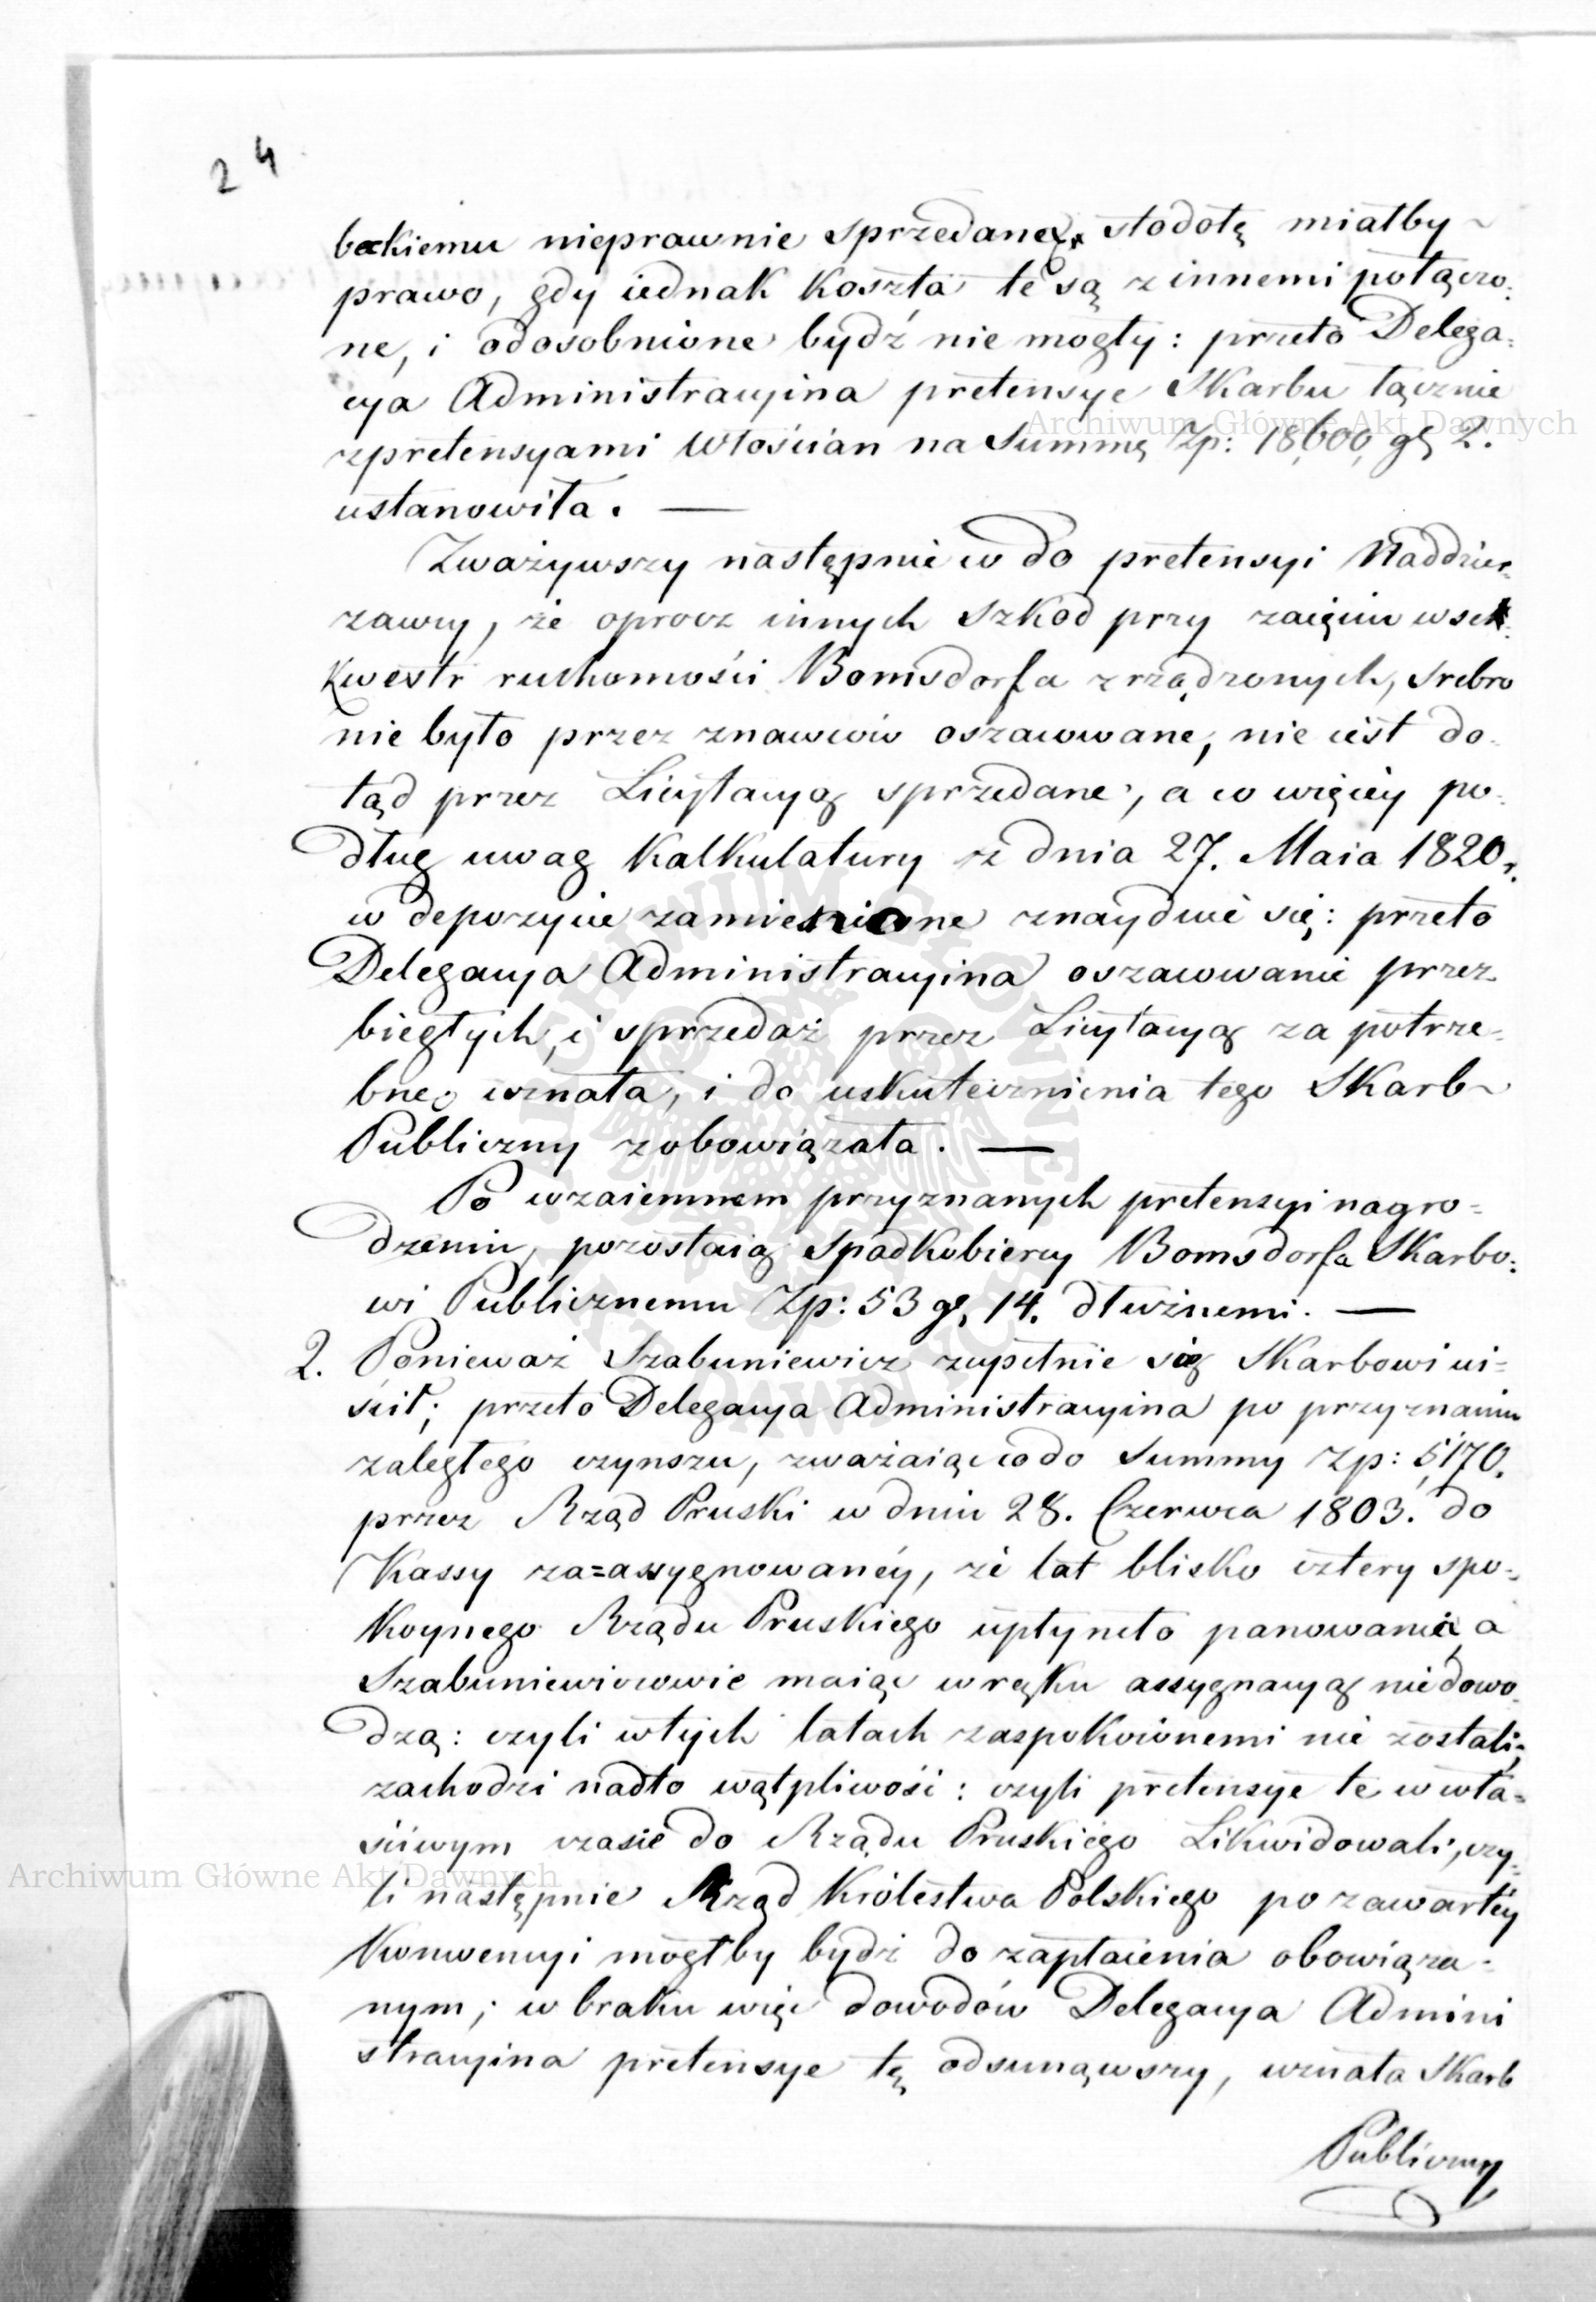 24
beckiemu nieprawnie sprzedaney stodołę miałby
prawo, gdy iednak koszta te są z innemi połączo:
ne, i odosobnione bydź nie mogły: przeto Delega:
cya Administracyina pretensye Skarbu łącznie
zpretensyami Włościan na Summę Zp: 18,600 gr 2.
ustanowiła. —
Zważywszy następnie co do pretensyi Naddzier-
zawcy, że oprocz innych szkod przy zaięciu w sek:
kwestr ruchomości Bomsdorfa zrządzonych, srebro
nie było przez znawców oszacowane, nie iest do-
tąd przez Licytacyą sprzedane, a co więcéy po-
dług uwag Kalkulatury z dnia 27. Maia 1820 r.
w depozycie zamienione znayduie się: przeto
Delegacya Administracyina oszacowanie przez
biegłych, i sprzedaż przez Licytacyą za potrze-
bne, uznała, i do uskutecznienia tego Skarb
Publiczny zobowiązała. —
Po wzaiemnem przyznanych pretensyi nagro-
dzeniu, pozostaią Spadkobiercy Bomsdorfa Skarbo:
wi Publicznemu Zp: 53 gr, 14. dłużnemi. —
2. Ponieważ Szabuniewicz zupełnie się Skarbowi ui-
ścił; przeto Delegacya Administracyina po przyznaniu
zaległego czynszu, zważaiąc co do Summy Zp: 5,170.
przez Rząd Pruski w dniu 28. Czerwca 1803. do
Kassy za=assygnowanéy, że lat blisko cztery spo-
koynego Rządu Pruskiego upłynęło panowania, a
Szabuniewiczowie maiąc w ręku assygnacyą nie dowo-
dzą: czyli w tych latach zaspokoionemi nie zostali;
zachodzi nadto wątpliwość: czyli pretensye te w wła-
ściwym czasie do Rządu Pruskiego Likwidowali, czy-
li następnie Rząd Królestwa Polskiego po zawartéy
Konwencyi mógłby bydź do zapłacenia obowiąza-
nym; w braku więc dowodów Delegacya Admini
stracyina pretensye tę odsunąwszy, uznała Skarb
Publiczny
Archiwum Główne Akt Dawnych
Archiwum Główne Akt Dawnych
ARCHIWUM GŁÓWNE AKT DAWNYCH